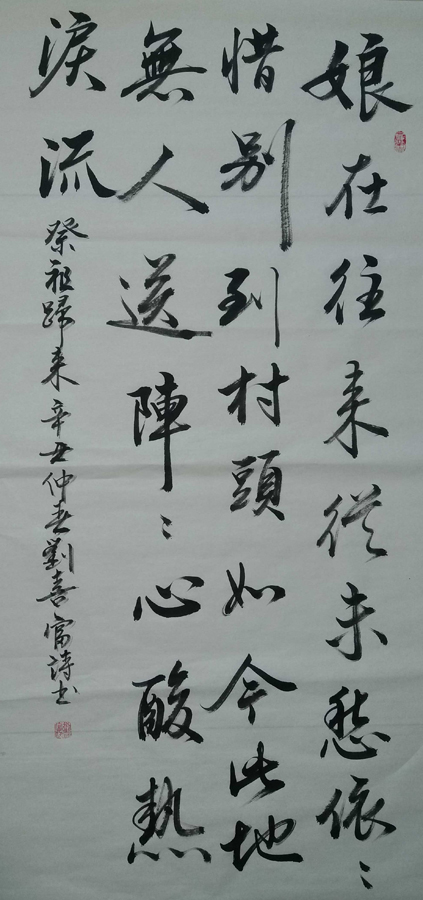 娘在往来從未愁依〻
惜别到村頭如今此地
無人送陣〻心酸熱
淚流
祭祖歸来辛丑仲春劉喜富詩书